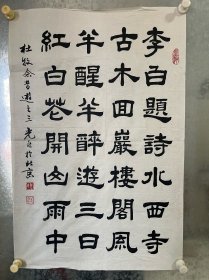 李白題詩水西寺
古木回巖樓閣風
半醒半醉遊三日
紅白花開山雨中
杜牧念昔遊之三
於北京